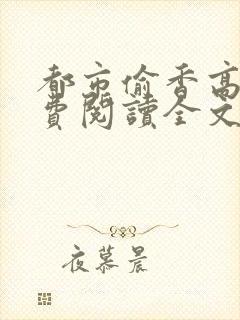 都市偷香高
費閱讀全文
夜慕晨